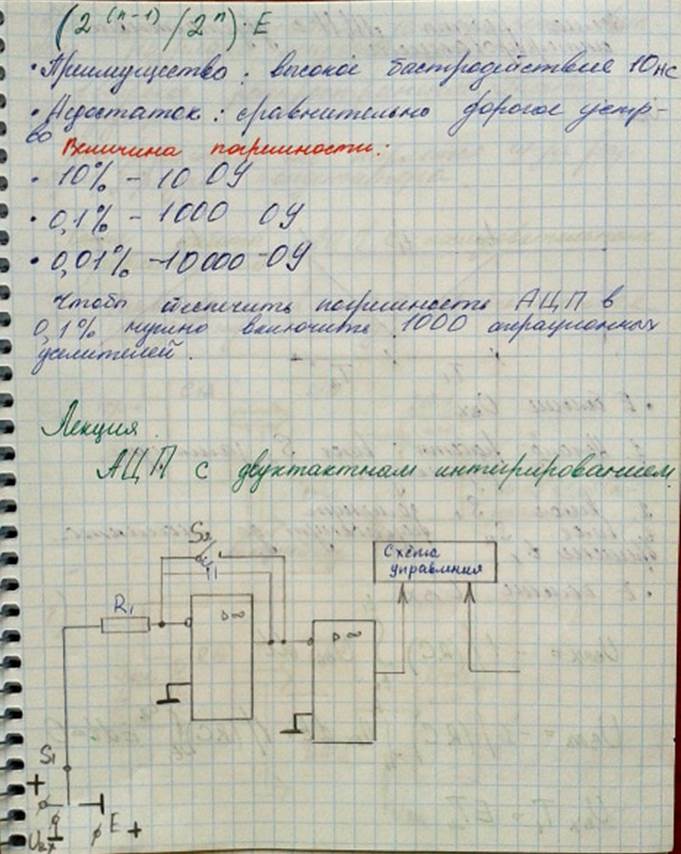 (2^(n-1) / 2^n) · E
• Преимущество: высокое бастродействие 10нс
• Недостаток: сравнительно дорогое устр-
во
Величина погрешности:
• 10% – 10 ОУ
• 0,1% – 1000 ОУ
• 0,01% – 10000 – ОУ
Чтобы обеспечить погрешность АЦП в
0,1% нужно включить 1000 операционных
усилителей.
Лекция
АЦП с двухтактнам интигрированием
S2
Схема
управления
R1
▷∞
▷∞
S1
+
Uвх
E +